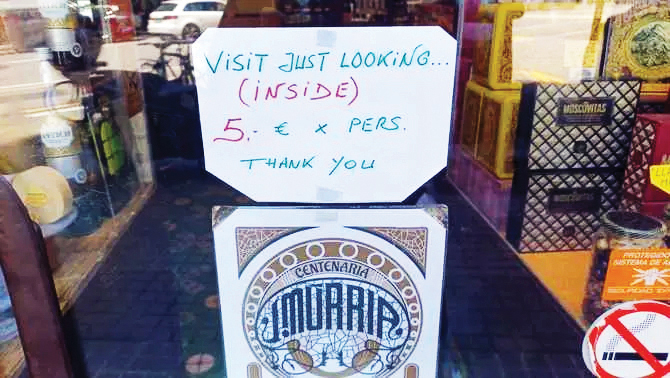 VISIT JUST LOOKING...
(INSIDE)
5.- € x PERS.
THANK YOU
CENTENARIA
J.MURRIA
MOSCOVITAS
MOSCOVITAS
PROTEGIDO
SISTEMA DE A